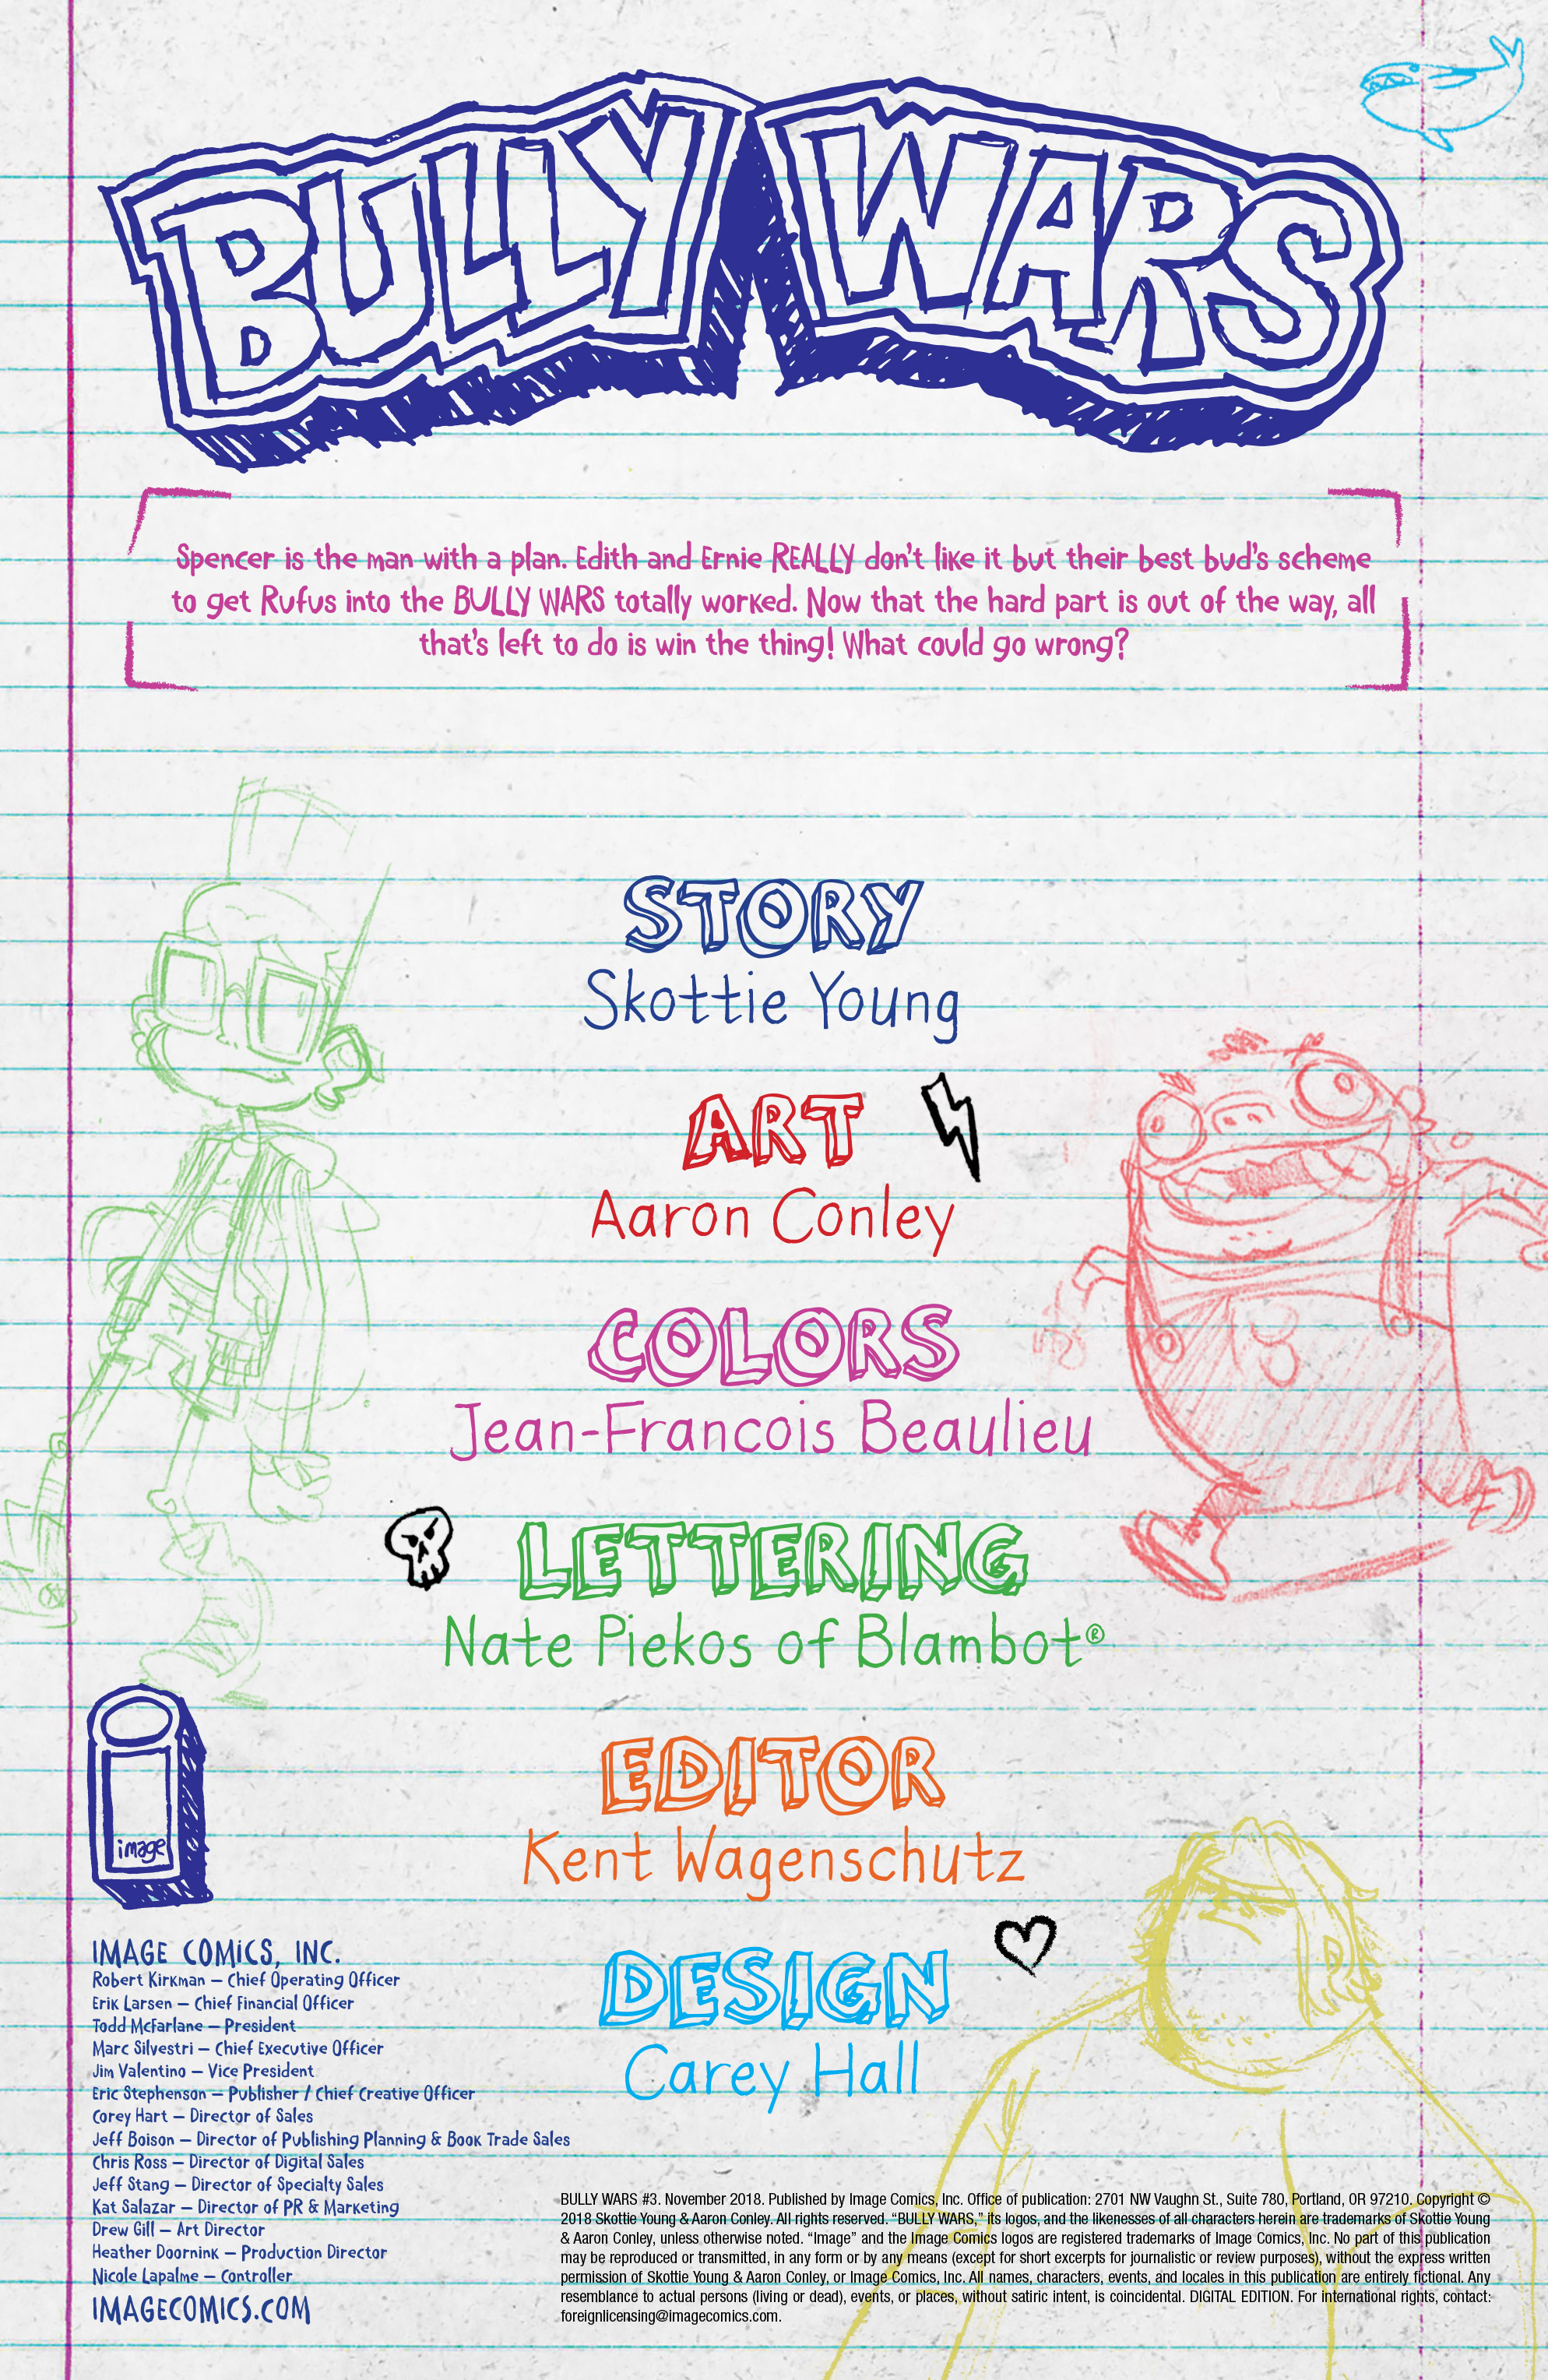 BULLY WARS
Spencer is the man with a plan. Edith and Ernie REALLY don't like it but their best bud's scheme
to get Rufus into the BULLY WARS totally worked. Now that the hard part is out of the way, all
that's left to do is win the thing! What could go wrong?
STORY
Skottie Young
ART
Aaron Conley
COLORS
Jean-Francois Beaulieu
LETTERING
Nate Piekos of Blambot®
EDITOR
Kent Wagenschutz
DESIGN
Carey Hall
image
IMAGE COMICS, INC.
Robert Kirkman — Chief Operating Officer
Erik Larsen — Chief Financial Officer
Todd McFarlane — President
Marc Silvestri — Chief Executive Officer
Jim Valentino — Vice President
Eric Stephenson — Publisher / Chief Creative Officer
Corey Hart — Director of Sales
Jeff Boison — Director of Publishing Planning & Book Trade Sales
Chris Ross — Director of Digital Sales
Jeff Stang — Director of Specialty Sales
Kat Salazar — Director of PR & Marketing
Drew Gill — Art Director
Heather Doornink — Production Director
Nicole Lapalme — Controller
IMAGECOMICS.COM
BULLY WARS #3. November 2018. Published by Image Comics, Inc. Office of publication: 2701 NW Vaughn St., Suite 780, Portland, OR 97210. Copyright ©
2018 Skottie Young & Aaron Conley. All rights reserved. “BULLY WARS,” its logos, and the likenesses of all characters herein are trademarks of Skottie Young
& Aaron Conley, unless otherwise noted. “Image” and the Image Comics logos are registered trademarks of Image Comics, Inc. No part of this publication
may be reproduced or transmitted, in any form or by any means (except for short excerpts for journalistic or review purposes), without the express written
permission of Skottie Young & Aaron Conley, or Image Comics, Inc. All names, characters, events, and locales in this publication are entirely fictional. Any
resemblance to actual persons (living or dead), events, or places, without satiric intent, is coincidental. DIGITAL EDITION. For international rights, contact:
foreignlicensing@imagecomics.com.